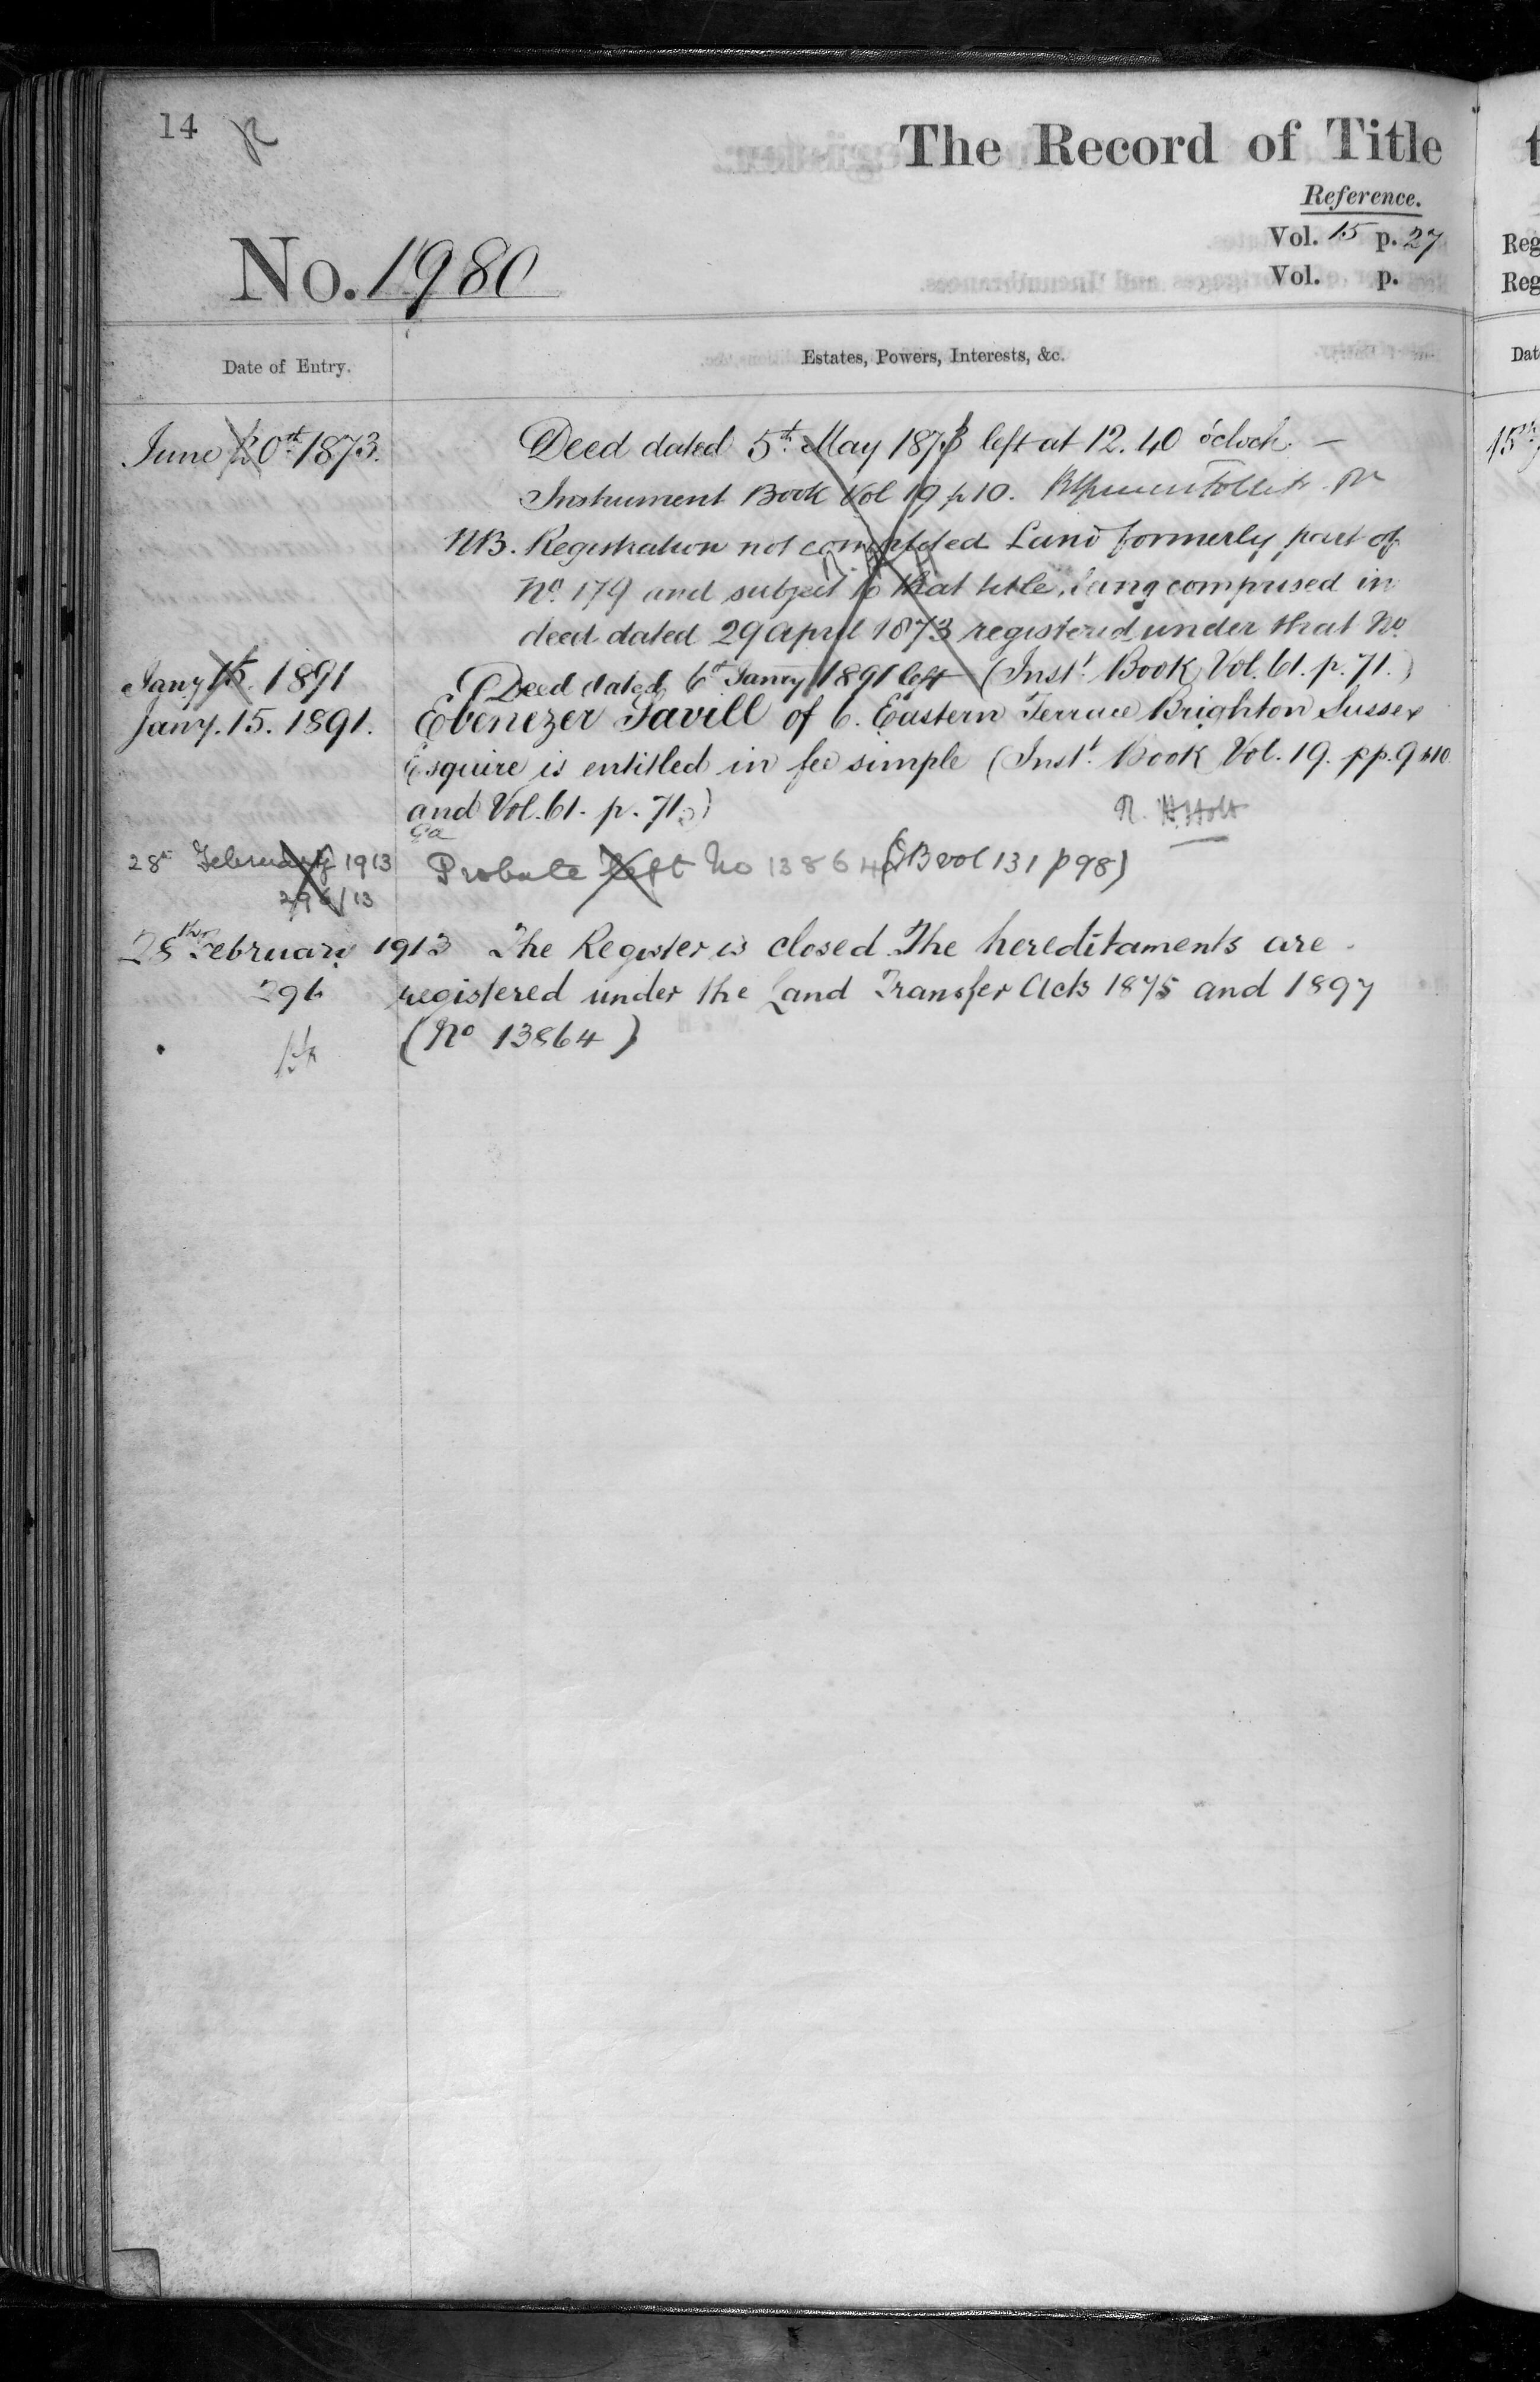 14
The Record of Title
Reference.
Vol. 15 p. 27
Vol. p.
No. 1980
Date of Entry.
Estates, Powers, Interests, &c.
June 20th 1873.
Deed dated 5th May 1873 left at 12.40 o'clock. —
Instrument Book Vol 19 p 10.
NB. Registration not completed Land formerly part of
No. 179 and subject to that title, being comprised in
deed dated 29 April 1873 registered under that No.
Jany 15. 1891
Deed dated 6th Janry 1891 left (Inst. Book Vol. 61. p. 71.)
Jany. 15. 1891.
Ebenezer Savill of 6. Eastern Terrace Brighton Sussex
Esquire is entitled in fee simple (Inst. Book Vol. 19. pp. 9 & 10
and Vol. 61. p. 71.)
R. H. Holt
28th February 1913
296/13
Probate left No 13864 (IB vol 131 p 98)
28th February 1913
296
The Register is closed. The hereditaments are
registered under the Land Transfer Acts 1875 and 1897
(No 13864)
t
Reg
Reg
Dat
15th